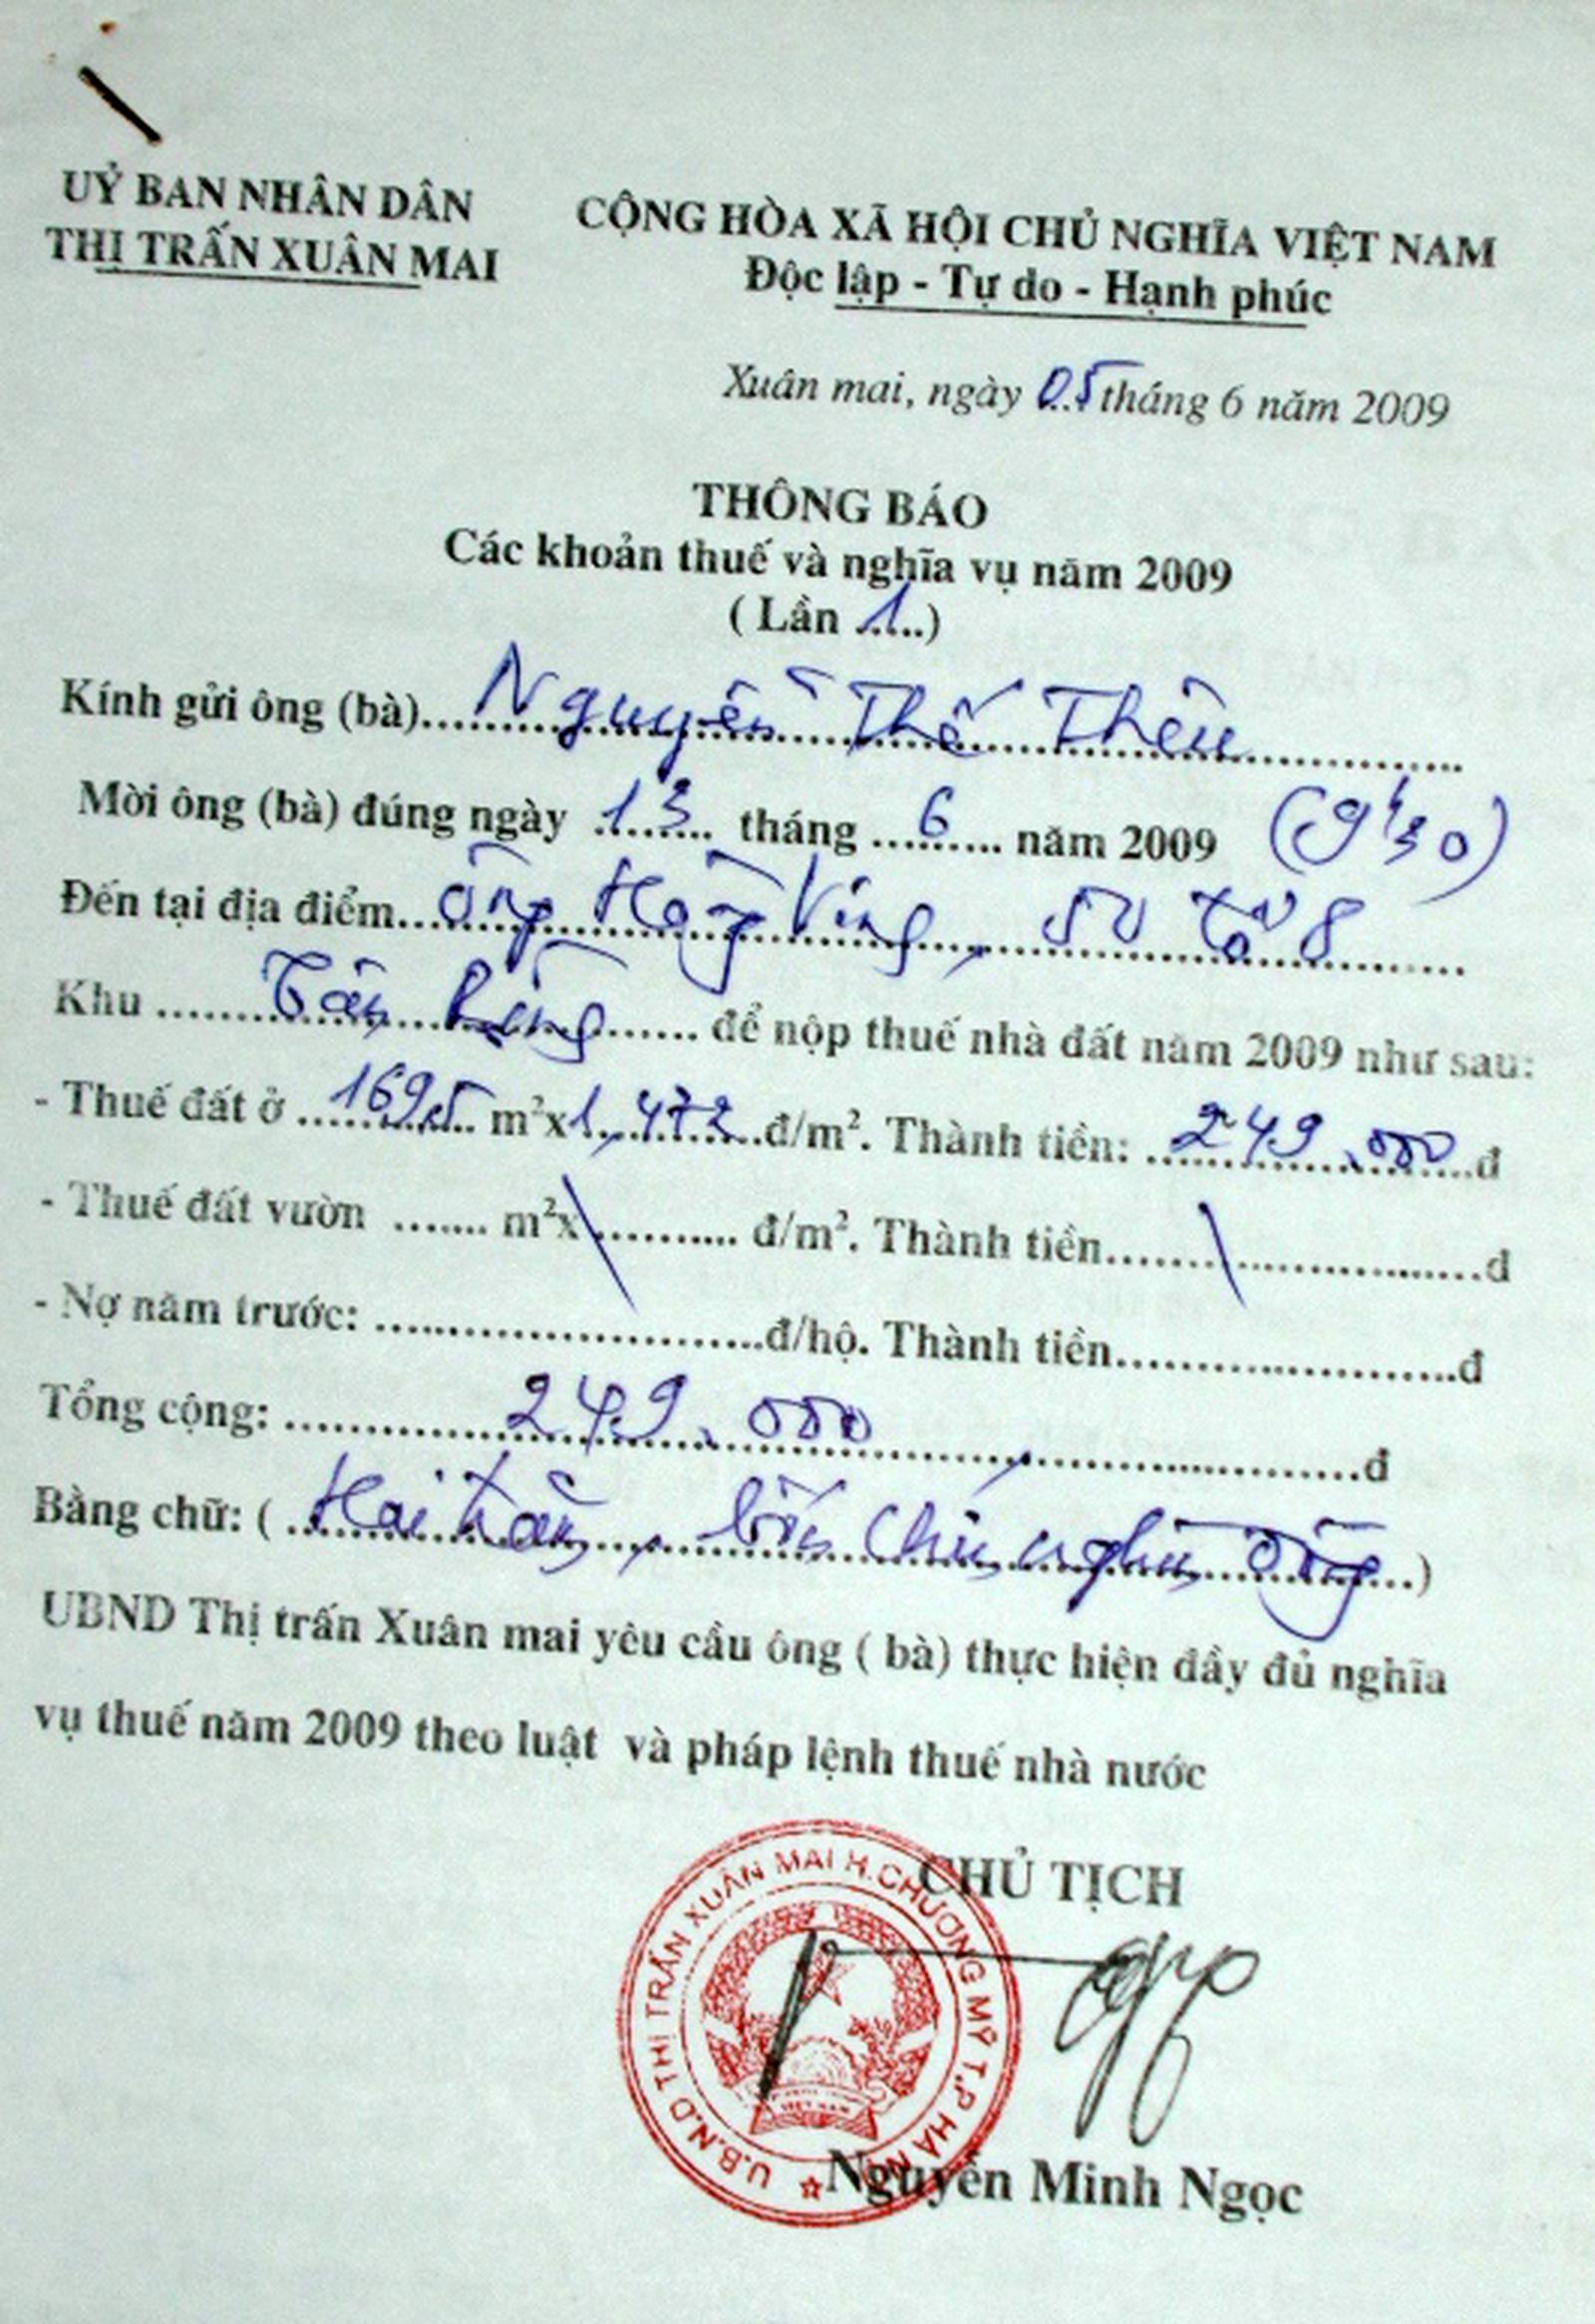 UỶ BAN NHÂN DÂN
THỊ TRẤN XUÂN MAI
CỘNG HÒA XÃ HỘI CHỦ NGHĨA VIỆT NAM
Độc lập - Tự do - Hạnh phúc
Xuân mai, ngày 05 tháng 6 năm 2009
THÔNG BÁO
Các khoản thuế và nghĩa vụ năm 2009
( Lần 1 )
Kính gửi ông (bà) Nguyễn Thế Thêu
Mời ông (bà) đúng ngày 13 tháng 6 năm 2009 (9h30)
Đến tại địa điểm ông Vinh, tổ 8
Khu Tân để nộp thuế nhà đất năm 2009 như sau:
- Thuế đất ở 169,5 m²x 1,472 đ/m². Thành tiền: 249.000 đ
- Thuế đất vườn ....... m²x .......... đ/m². Thành tiền..................đ
- Nợ năm trước: ..........................đ/hộ. Thành tiền.........................đ
Tổng cộng: 249.000 đ
Bằng chữ: ( Hai trăm, bốn chín nghìn đồng )
UBND Thị trấn Xuân mai yêu cầu ông ( bà) thực hiện đầy đủ nghĩa
vụ thuế năm 2009 theo luật và pháp lệnh thuế nhà nước
CHỦ TỊCH
U.B.N.D THỊ TRẤN XUÂN MAI H.CHƯƠNG MỸ T.P HÀ NỘI
VIỆT NAM
Nguyễn Minh Ngọc